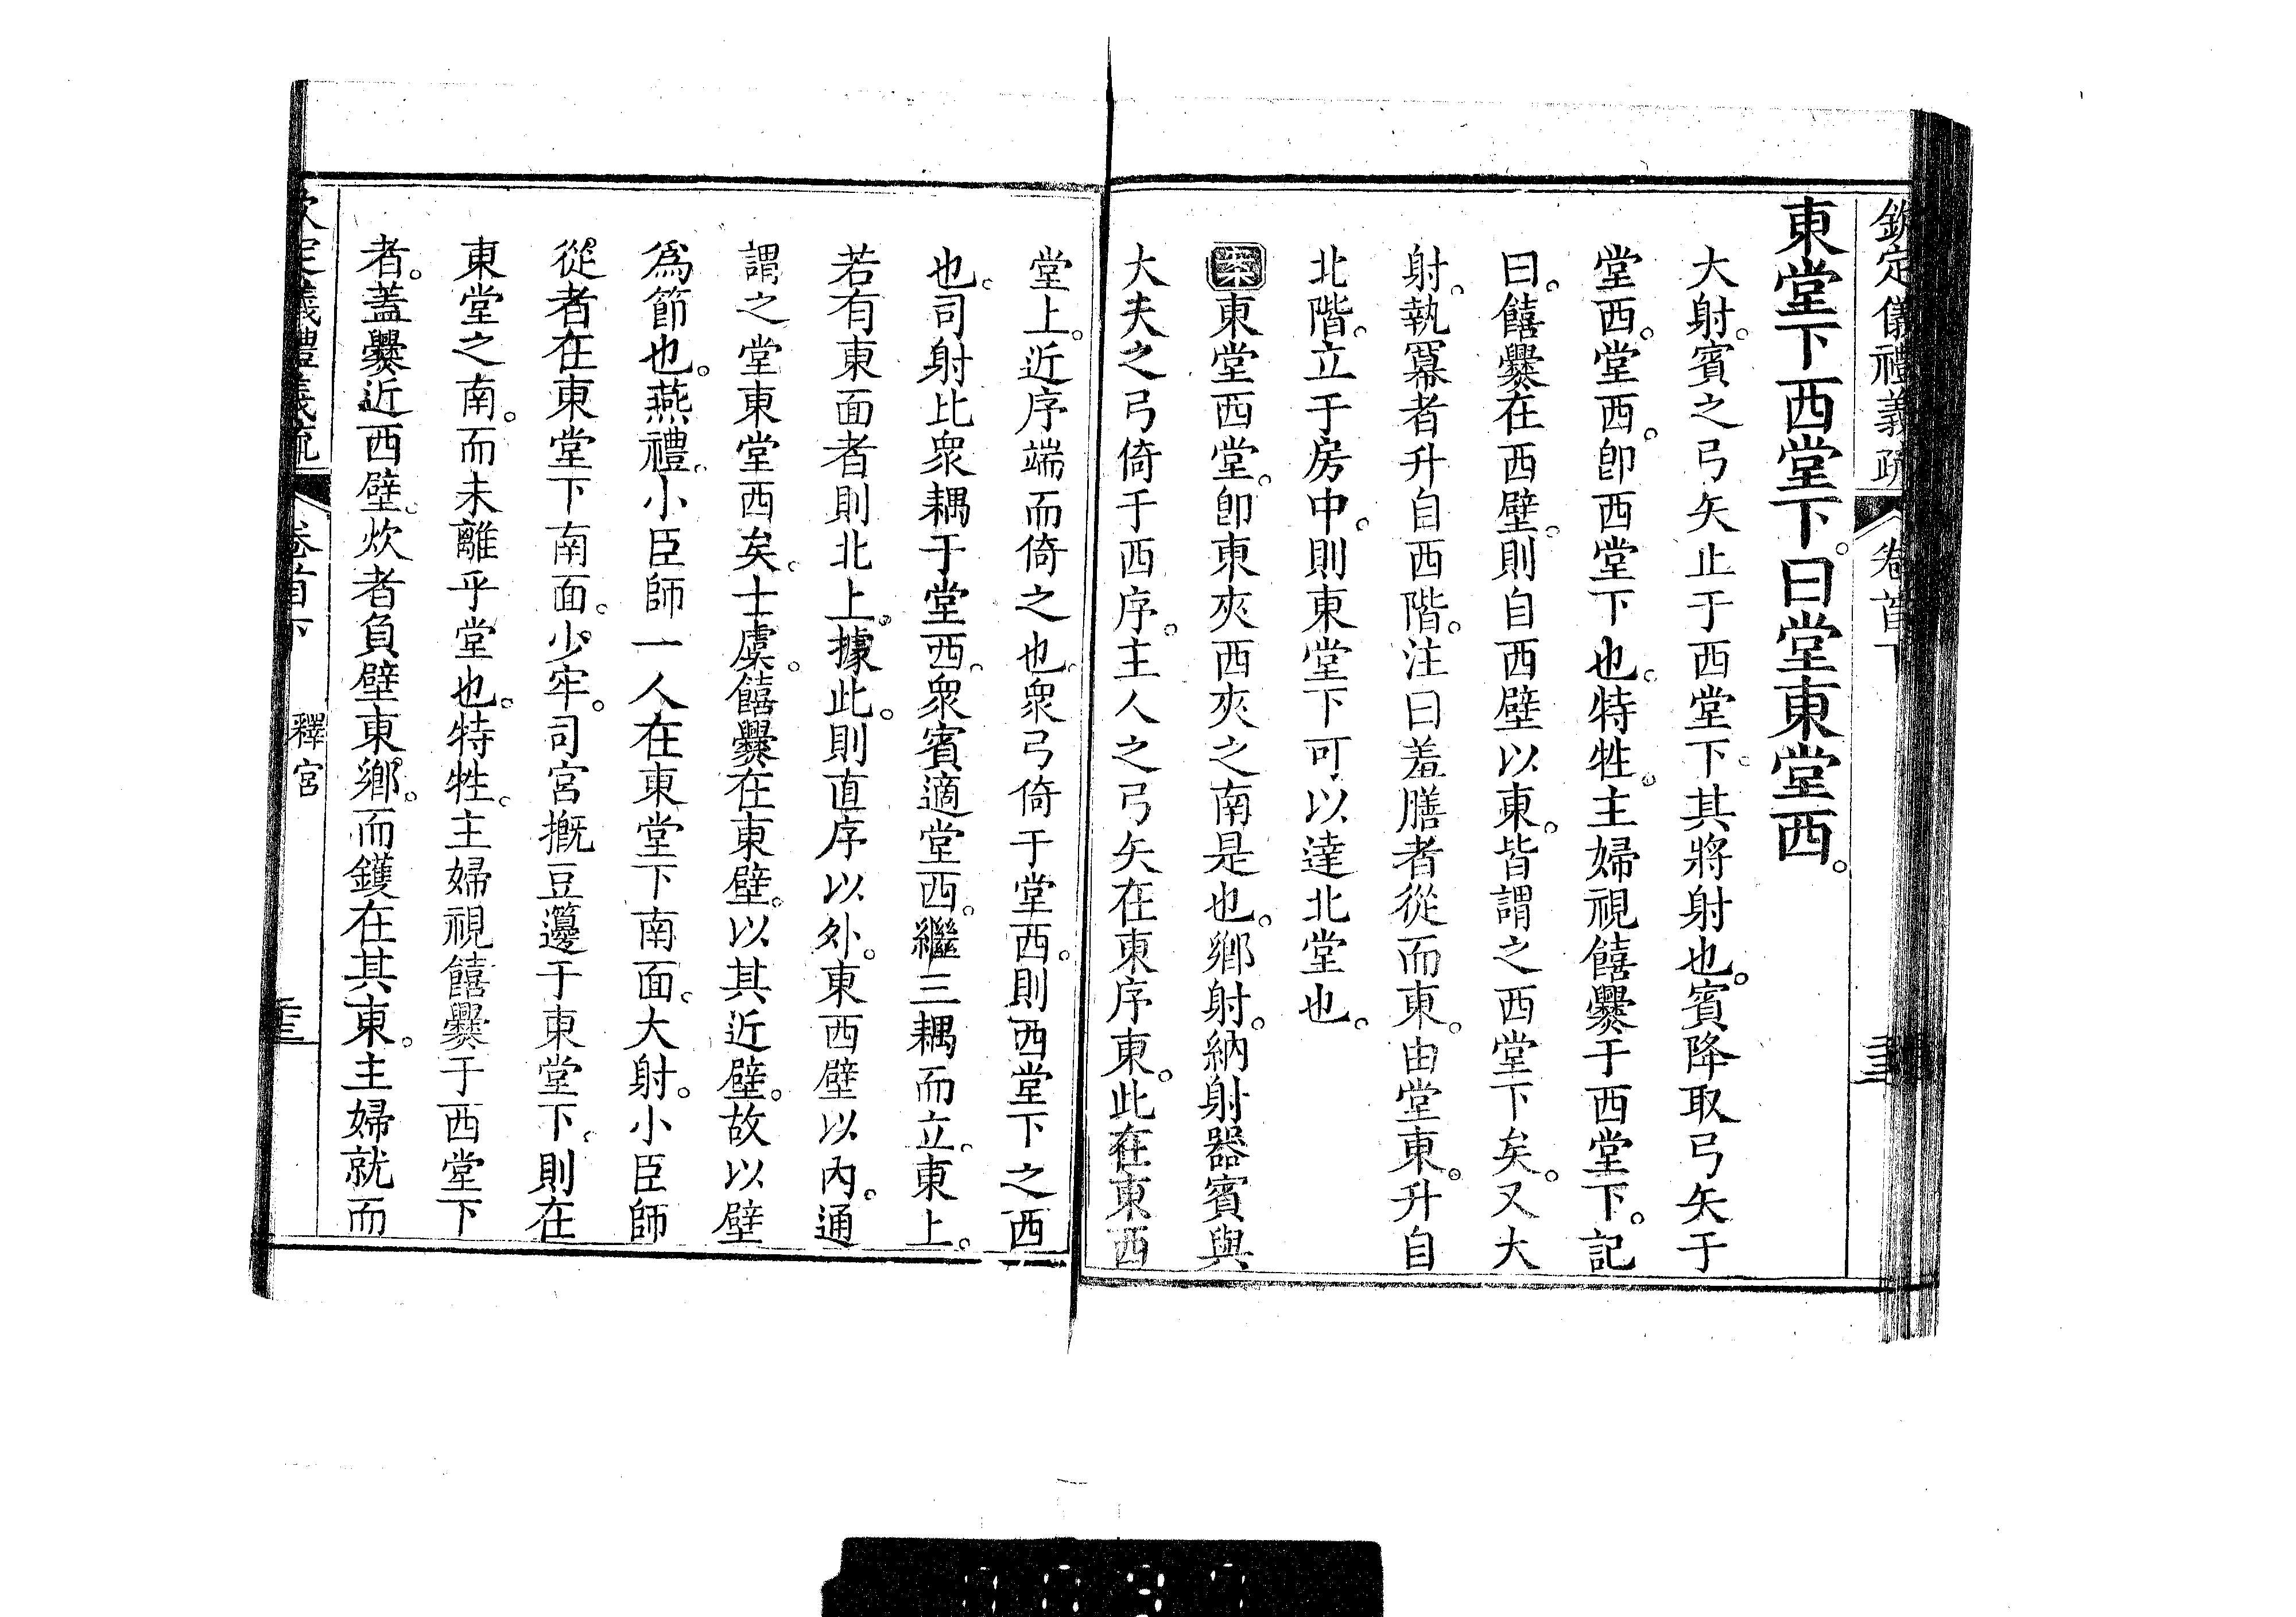 欽定儀禮義疏　卷首下
東堂下西堂下。曰堂東堂西。
大射。賓之弓矢止于西堂下。其將射也。賓降取弓矢于
堂西。堂西。卽西堂下也。特牲。主婦視饎爨于西堂下。記
曰。饎爨在西壁。則自西壁以東。皆謂之西堂下矣。又大
射。執冪者升自西階。注曰羞膳者從而東。由堂東。升自
北階。立于房中。則東堂下可以達北堂也。
案東堂西堂。卽東夾西夾之南是也。鄉射。納射器賓與
大夫之弓倚于西序。主人之弓矢在東序東。此在東西
堂上。近序端而倚之也。衆弓倚于堂西。則西堂下之西
也。司射比衆耦于堂西。衆賓適堂西。繼三耦而立。東上。
若有東面者則北上。據此。則直序以外。東西壁以內。通
謂之堂東堂西矣。士虞。饎爨在東壁。以其近壁。故以壁
爲節也。燕禮。小臣師一人在東堂下南面。大射。小臣師
從者在東堂下南面。少牢。司宮摡豆籩于東堂下。則在
東堂之南。而未離乎堂也。特牲。主婦視饎爨于西堂下
者。蓋爨近西壁。炊者負壁東鄉。而鑊在其東。主婦就而
欽定儀禮義疏　卷首下　釋宮